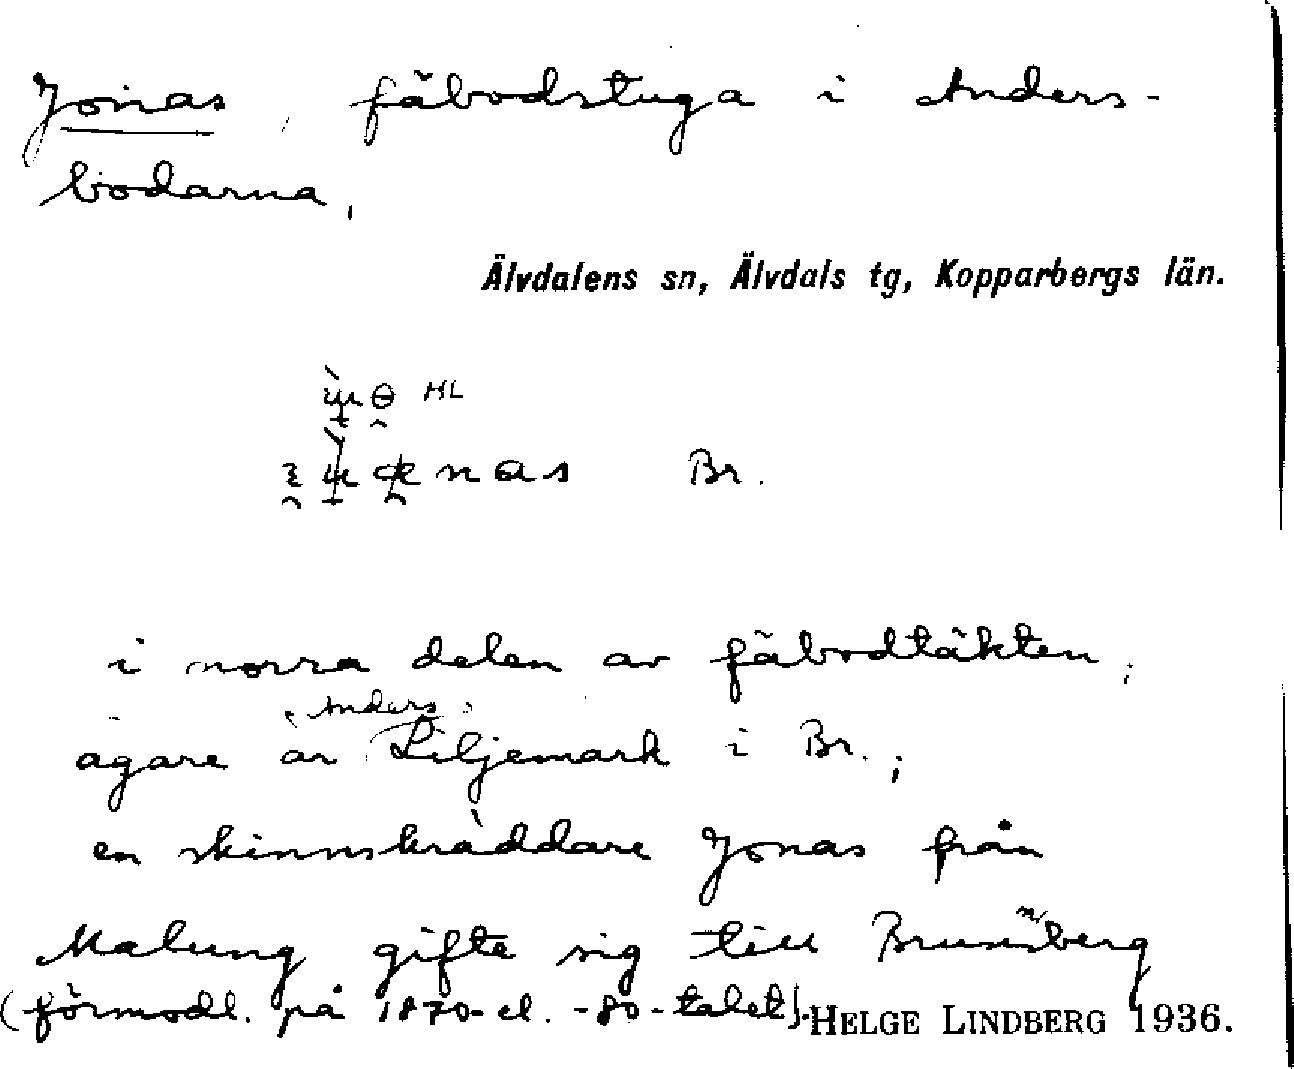 Jonas, fäbodstuga i Anders-
bodarna,
Älvdalens sn, Älvdals tg, Kopparbergs län.
HL
nas Br.
i norra delen av fäbodtäkten;
Anders
ägare är Liljemark i Br.;
en skinnskräddare Jonas från
Malung gifte sig till Brunnsberg
(förmodl. på 1870- el. -80-talet). HELGE LINDBERG 1936.